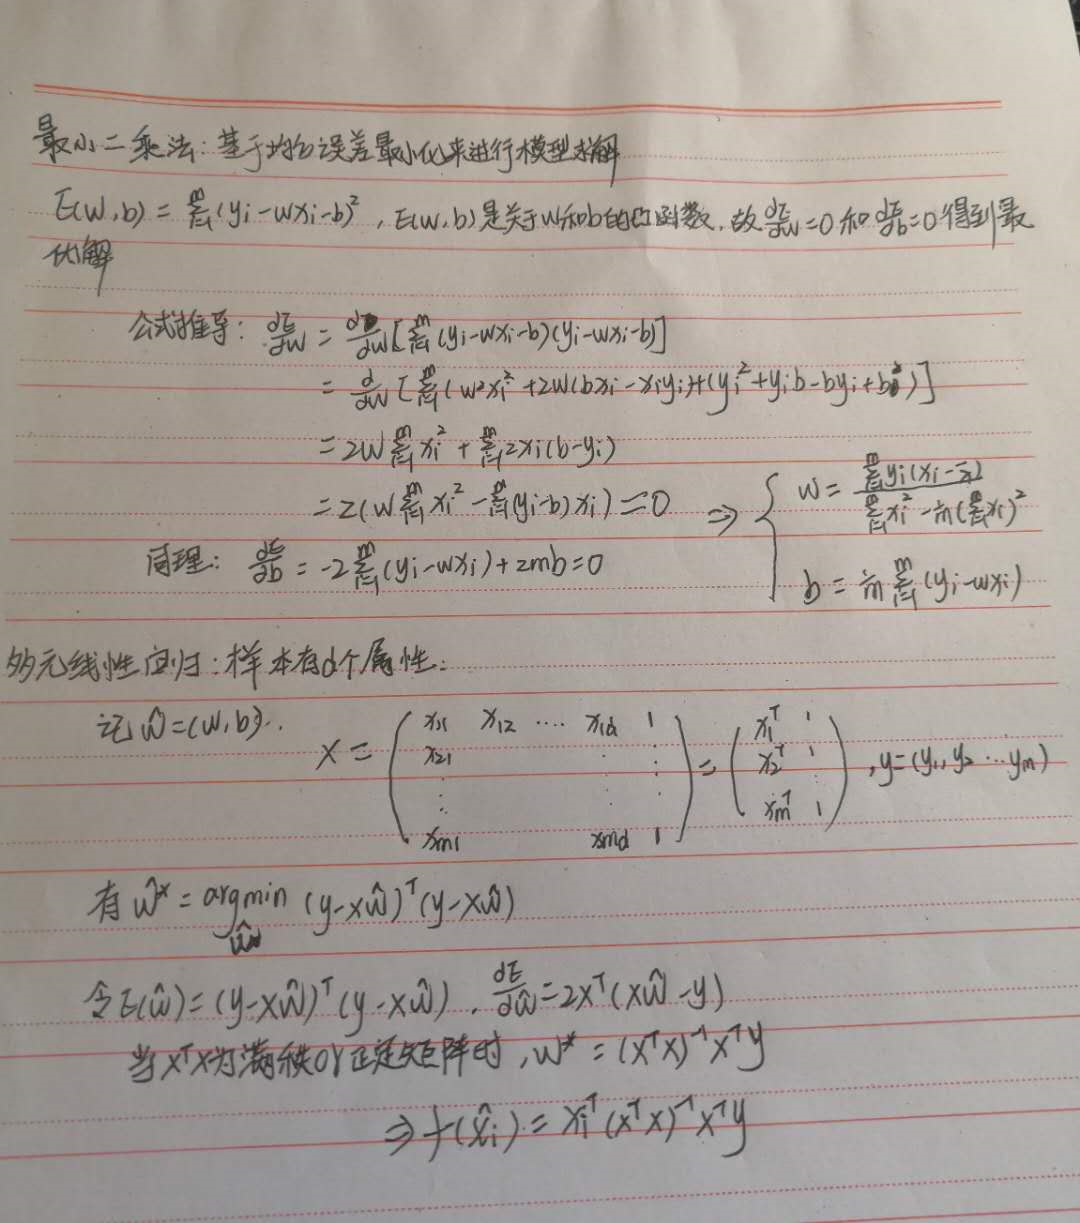 最小二乘法:基于均方误差最小化来进行模型求解
E(w,b) = Σ_{i=1}^m (yi-wxi-b)², E(w,b)是关于w和b的凸函数,故 dE/dw=0 和 dE/db=0 得到最
优解
公式推导: dE/dw = d/dw[Σ_{i=1}^m (yi-wxi-b)(yi-wxi-b)]
= d/dw [Σ_{i=1}^m (w²xi²+2w(bxi-xiyi)+(yi²+yib-byi+b²)]
= 2wΣ_{i=1}^m xi² + Σ_{i=1}^m 2xi(b-yi)
= 2(wΣ_{i=1}^m xi² - Σ_{i=1}^m (yi-b)xi) = 0 ⇒ { w = Σ_{i=1}^m yi(xi-x̄) / (Σ_{i=1}^m xi² - 1/m(Σ_{i=1}^m xi)²)
同理: dE/db = -2Σ_{i=1}^m (yi-wxi)+2mb=0
b = 1/m Σ_{i=1}^m (yi-wxi)
多元线性回归:样本有d个属性.
记ŵ=(w,b).
X = ( x11 x12 .... x1d 1 ) = ( x1ᵀ 1 ) , y=(y1,y2 ... ym)
x21 ⋮ x2ᵀ 1
⋮ ⋮
xm1 xmd 1 xmᵀ 1
有 ŵ* = argmin (y-Xŵ)ᵀ(y-Xŵ)
ŵ
令E(ŵ)=(y-Xŵ)ᵀ(y-Xŵ), dE/dŵ=2Xᵀ(Xŵ-y)
当XᵀX为满秩or正定矩阵时, w* = (XᵀX)⁻¹Xᵀy
⇒ f(x̂i) = xiᵀ(XᵀX)⁻¹Xᵀy